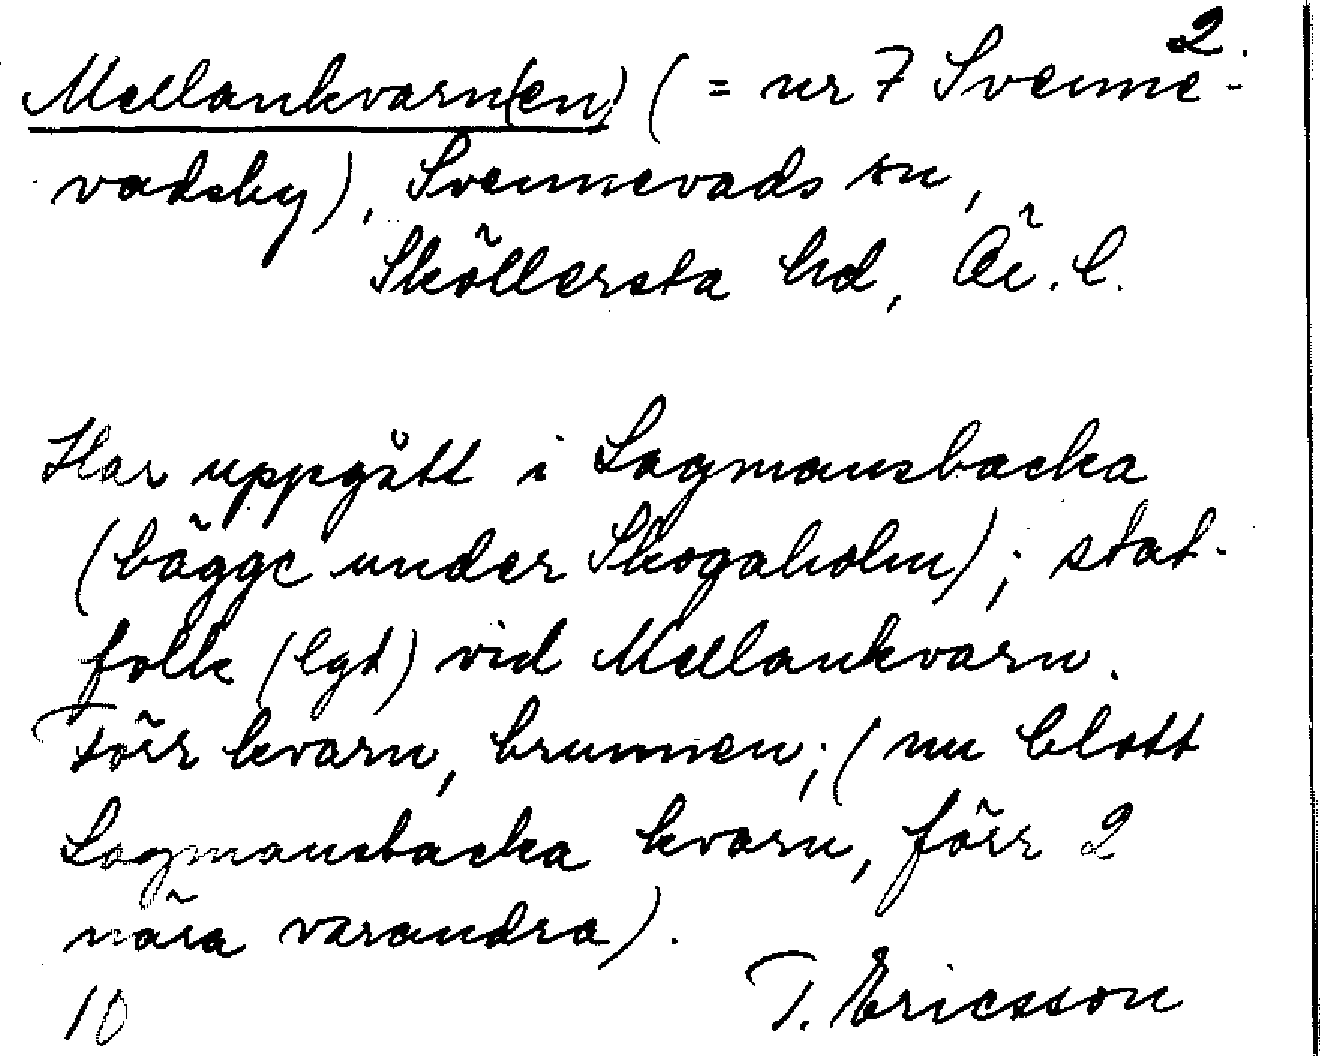 2.
Mellankvarn(en) (= nr 7 Svenne-
vadsby), Svennevads sn,
Sköllersta hd, Ör. l.
Har uppgått i Lagmansbacka
(bägge under Skogaholm); stat-
folk (lgt) vid Mellankvarn.
Förr kvarn, brunnen; (nu blott
Lagmansbacka kvarn, förr 2
nära varandra).
10 T. Ericsson